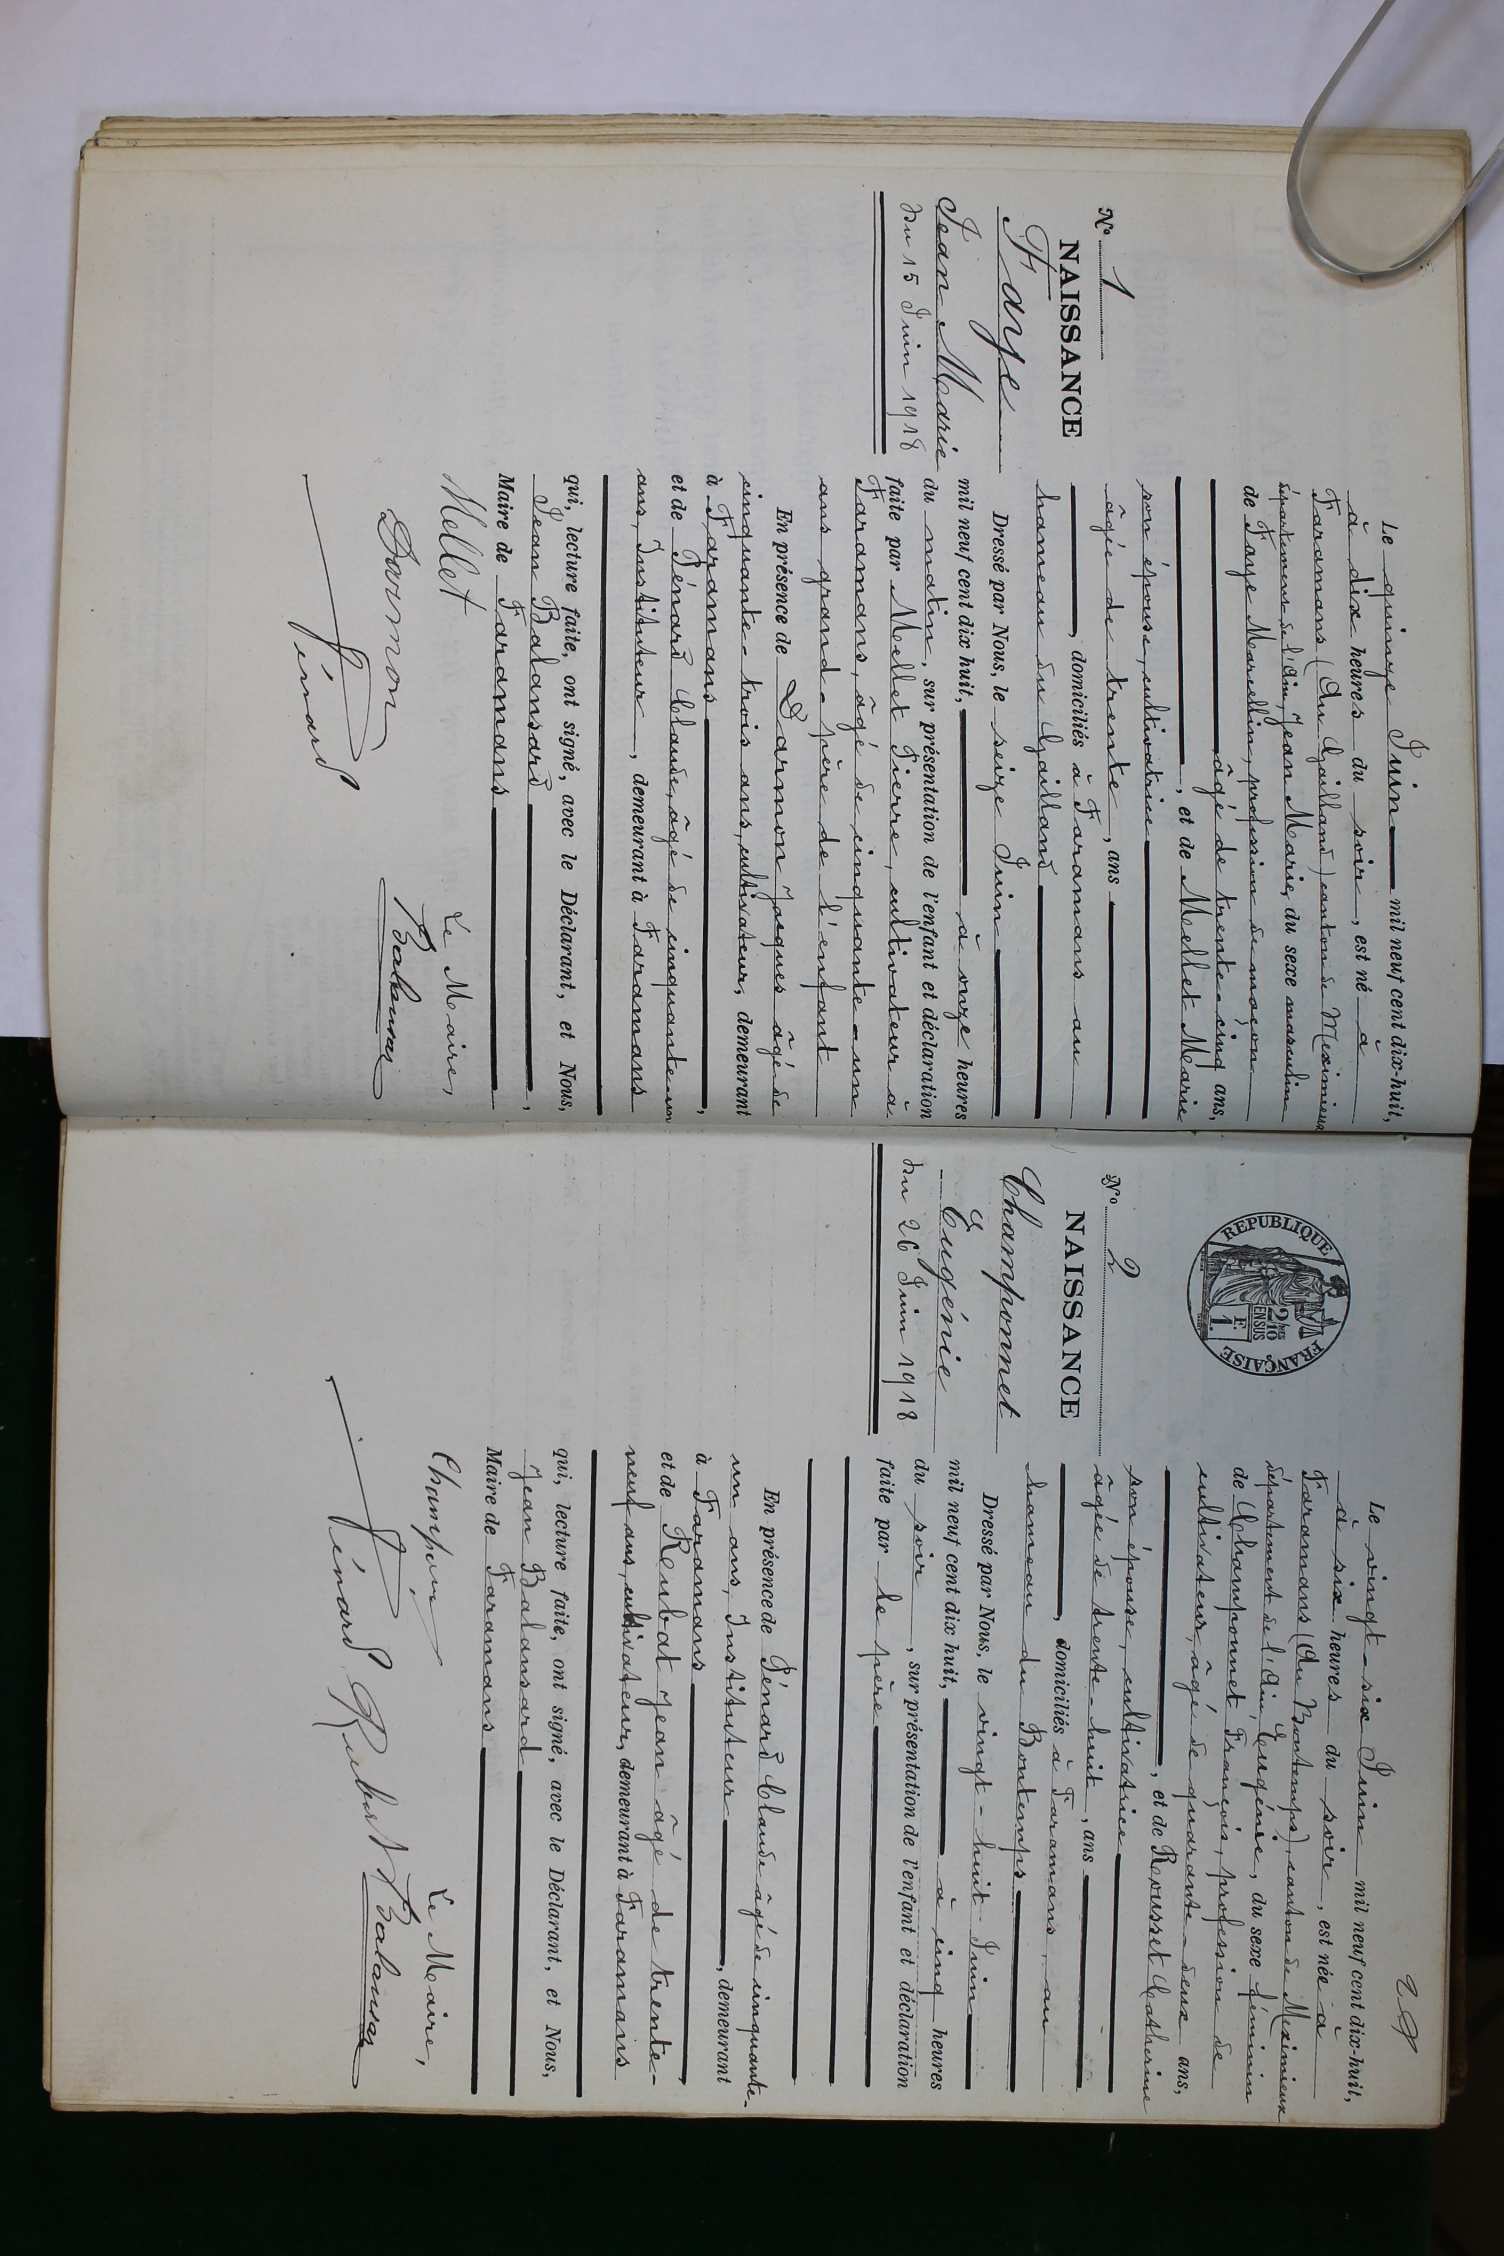 N° 1
NAISSANCE
Faye
Jean Marie
du 15 Juin 1918
Le quinze Juin mil neuf cent dix-huit,
à dix heures du soir, est né à
Faramans (Au Gailland) canton de Meximieux
département de l'Ain, Jean Marie, du sexe masculin
de Faye Marcellin, profession de maçon
âgé de trente-cinq ans,
, et de Mellet Marie
son épouse, cultivatrice
âgée de trente, ans
, domiciliés à Faramans au
hameau du Gailland
Dressé par Nous, le seize Juin
mil neuf cent dix huit, à onze heures
du matin, sur présentation de l'enfant et déclaration
faite par Mellet Pierre, cultivateur à
Faramans, âgé de cinquante-un
ans grand-père de l'enfant
En présence de Darmon Jacques âgé de
cinquante-trois ans, cultivateur, demeurant
à Faramans,
et de Pénard Claude, âgé de cinquante-un
ans, Instituteur, demeurant à Faramans
qui, lecture faite, ont signé, avec le Déclarant, et Nous,
Jean Balansard,
Maire de Faramans
Mellet
Le Maire,
Darmon
Pénard
2 9
REPUBLIQUE FRANÇAISE
2/10 EN SUS
F. 1.
N° 2
NAISSANCE
Champonnet
Eugénie
du 26 Juin 1918
Le vingt-six Juin mil neuf cent dix-huit,
à six heures du soir, est née à
Faramans (Au Bontemps), canton de Meximieux
département de l'Ain, Eugénie, du sexe féminin
de Champonnet François, profession de
cultivateur, âgé de quarante-deux ans,
, et de Rousset Catherine
son épouse, cultivatrice
âgée de trente-huit, ans
, domiciliés à Faramans, au
hameau du Bontemps
Dressé par Nous, le vingt-huit Juin
mil neuf cent dix huit, à cinq heures
du soir, sur présentation de l'enfant et déclaration
faite par le père
En présence de Pénard Claude âgé de cinquante-
un ans, Instituteur, demeurant
à Faramans,
et de Reubat Jean âgé de trente-
neuf ans, cultivateur, demeurant à Faramans
qui, lecture faite, ont signé, avec le Déclarant, et Nous,
Jean Balansard
Maire de Faramans
Le Maire,
Pénard